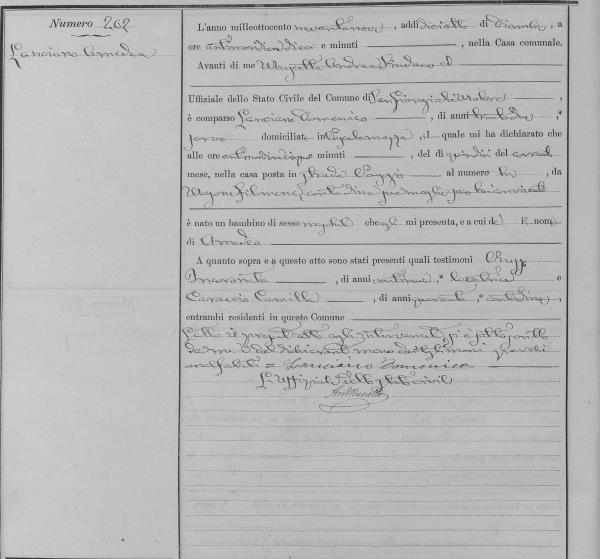 Numero 262
Lanciano Amedea
L'anno milleottocento novantanove, addì diciotto di Dicembre, a
ore antimeridiane dieci e minuti, nella Casa comunale.
Avanti di me Andrea Sindaco ed
Uffiziale dello Stato Civile del Comune di San Giorgio la Molara,
è comparso Lanciano Domenico, di anni trentadue,
domiciliato in, il quale mi ha dichiarato che
alle ore antimeridiane cinque e minuti, del dì quindici del corrente
mese, nella casa posta in strada Poggio al numero, da
Filomena, contadina sua moglie seco lui convivente
è nato un bambino di sesso che egli mi presenta, e a cui dà il nome
di Amedea
A quanto sopra e a questo atto sono stati presenti quali testimoni
Incoronata, di anni ventinove, e
Camillo, di anni quaranta, contadino,
entrambi residenti in questo Comune
Letto il presente atto agli intervenuti si è sottoscritto
da me e dal dichiarante meno dai testimoni perché
analfabeti = Lanciano Domenico
L'Uffiziale dello Stato civile